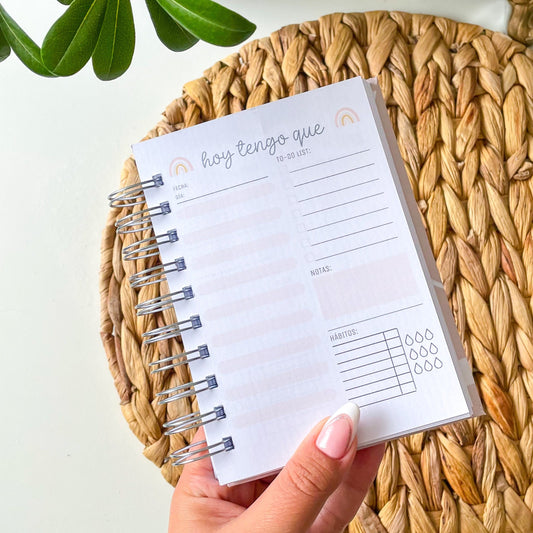 hoy tengo que
FECHA:
DÍA:
TO-DO LIST:
NOTAS:
HÁBITOS: